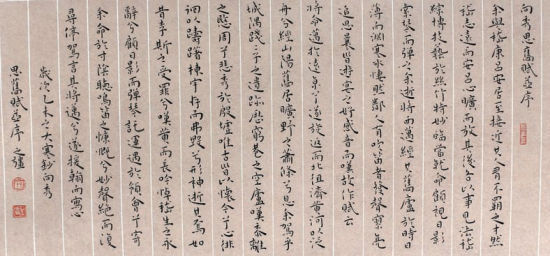 向秀思舊賦並序
余與嵇康呂安居至接近其人有不羈之才然
嵇志遠而安呂心曠而放其後各以事見法嵇
綜博技藝於絲竹特妙臨當就命顧視日影
索琴而彈之余逝將西邁經其舊廬於時日
薄虞淵寒水悽然鄰人有吹笛者發聲寥亮
追思曩昔遊宴之好感音而嘆故作賦云
將命適於遠京兮遂旋返而北徂濟黃河以泛
舟兮經山陽舊居曠野之蕭條兮息余駕乎
城隅踐二子之遺跡歷窮巷之空廬嘆黍離
之愍周兮悲秀於殷墟惟古昔以懷今兮心徘
徊以躊躇棟宇存而弗毀兮形神逝其焉如
昔李斯之受罪兮嘆黃而長吟悼嵇生之永
辭兮顧日影而彈琴託運遇於領會兮寄
余命於寸陰聽鳴笛之慷慨兮妙聲絕而復
尋停駕言其將邁兮遂援翰而寫心
歲次乙未之大寒鈔向秀
思舊賦並序